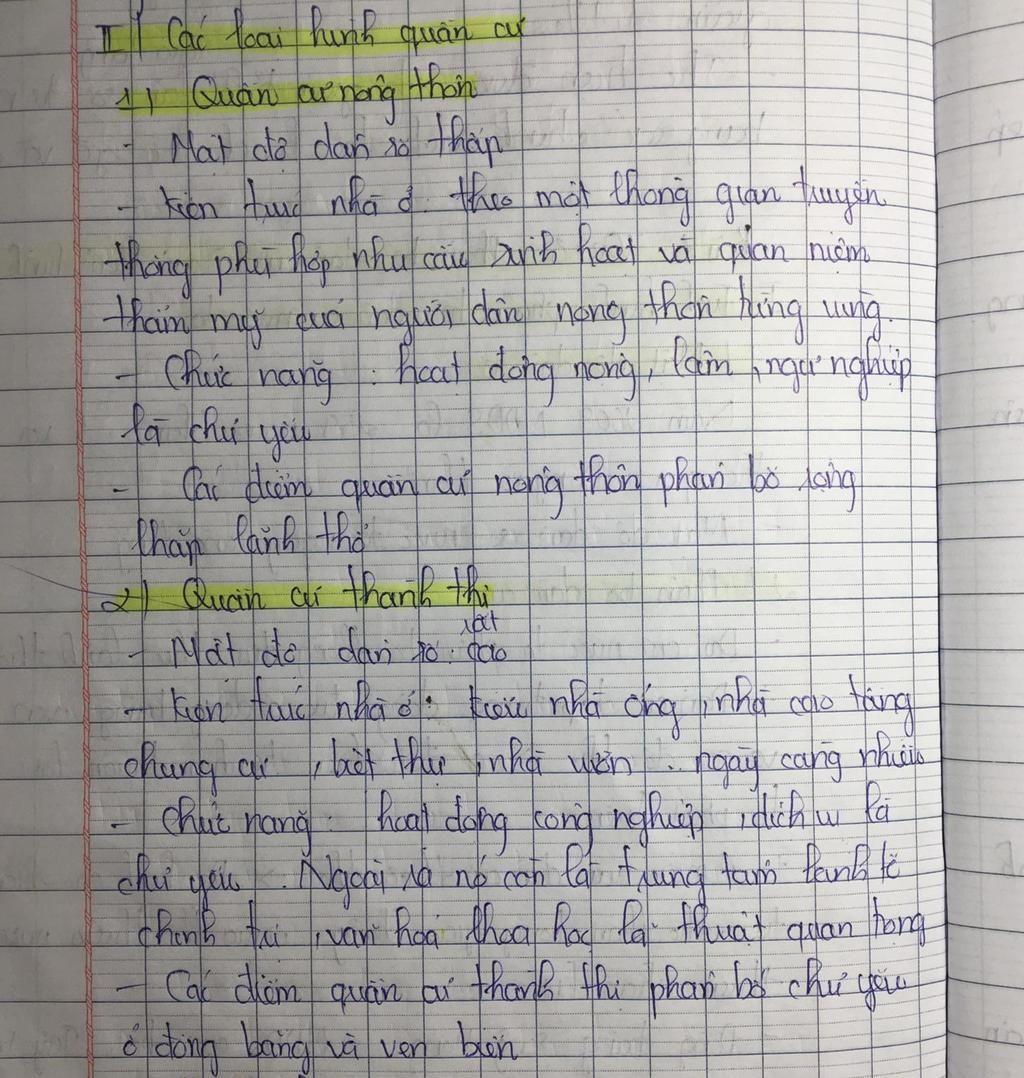 II) Các loại hình quần cư
1) Quần cư nông thôn
- Mật độ dân số thấp
- Kiến trúc nhà ở: theo một không gian truyền
thống phù hợp nhu cầu sinh hoạt và quan niệm
thẩm mỹ của người dân nông thôn từng vùng.
- Chức năng: hoạt động nông, lâm, ngư nghiệp
là chủ yếu
- Các điểm quần cư nông thôn phân bố rộng
khắp lãnh thổ
2) Quần cư thành thị
- Mật độ dân số: rất cao
- Kiến trúc nhà ở: kiểu nhà ống, nhà cao tầng
chung cư, biệt thự, nhà vườn.. ngày càng nhiều
- Chức năng: hoạt động công nghiệp, dịch vụ là
chủ yếu. Ngoài ra nó còn là trung tâm kinh tế
chính trị, văn hoá khoa học kĩ thuật quan trọng
- Các điểm quần cư thành thị phân bố chủ yếu
ở đồng bằng và ven biển